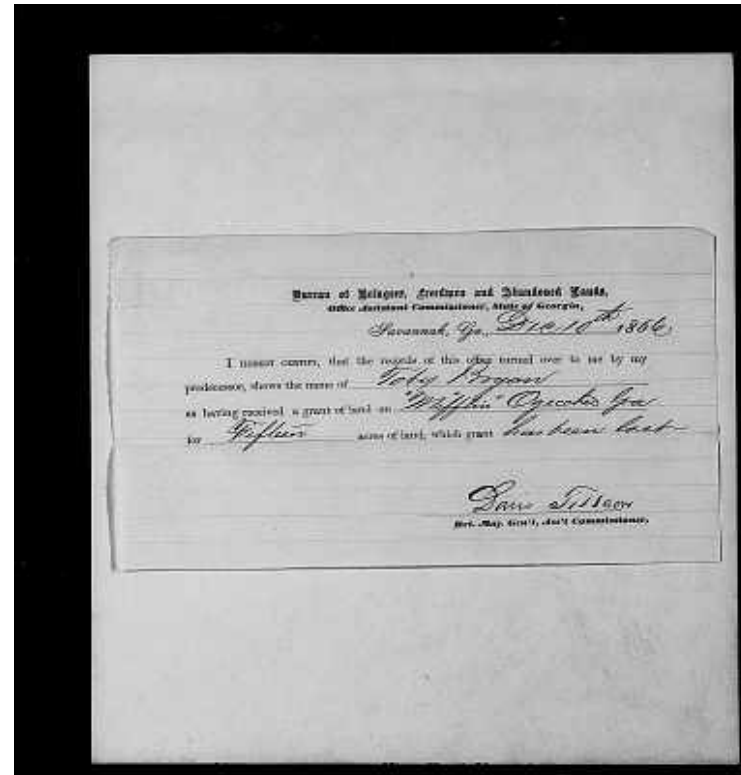 Bureau of Refugees, Freedmen and Abandoned Lands,
Office Assistant Commissioner, State of Georgia,
Savannah, Ga., Dec 10th 1866
I HEREBY CERTIFY, that the records of this office turned over to me by my
predecessor, shows the name of Toby Bryan
as having received a grant of land on "Mifflin" Ogeechee Ga
for Fifteen acres of land, which grant has been lost
Davis Tillson
Bvt. Maj. Gen'l, Ass't Commissioner,